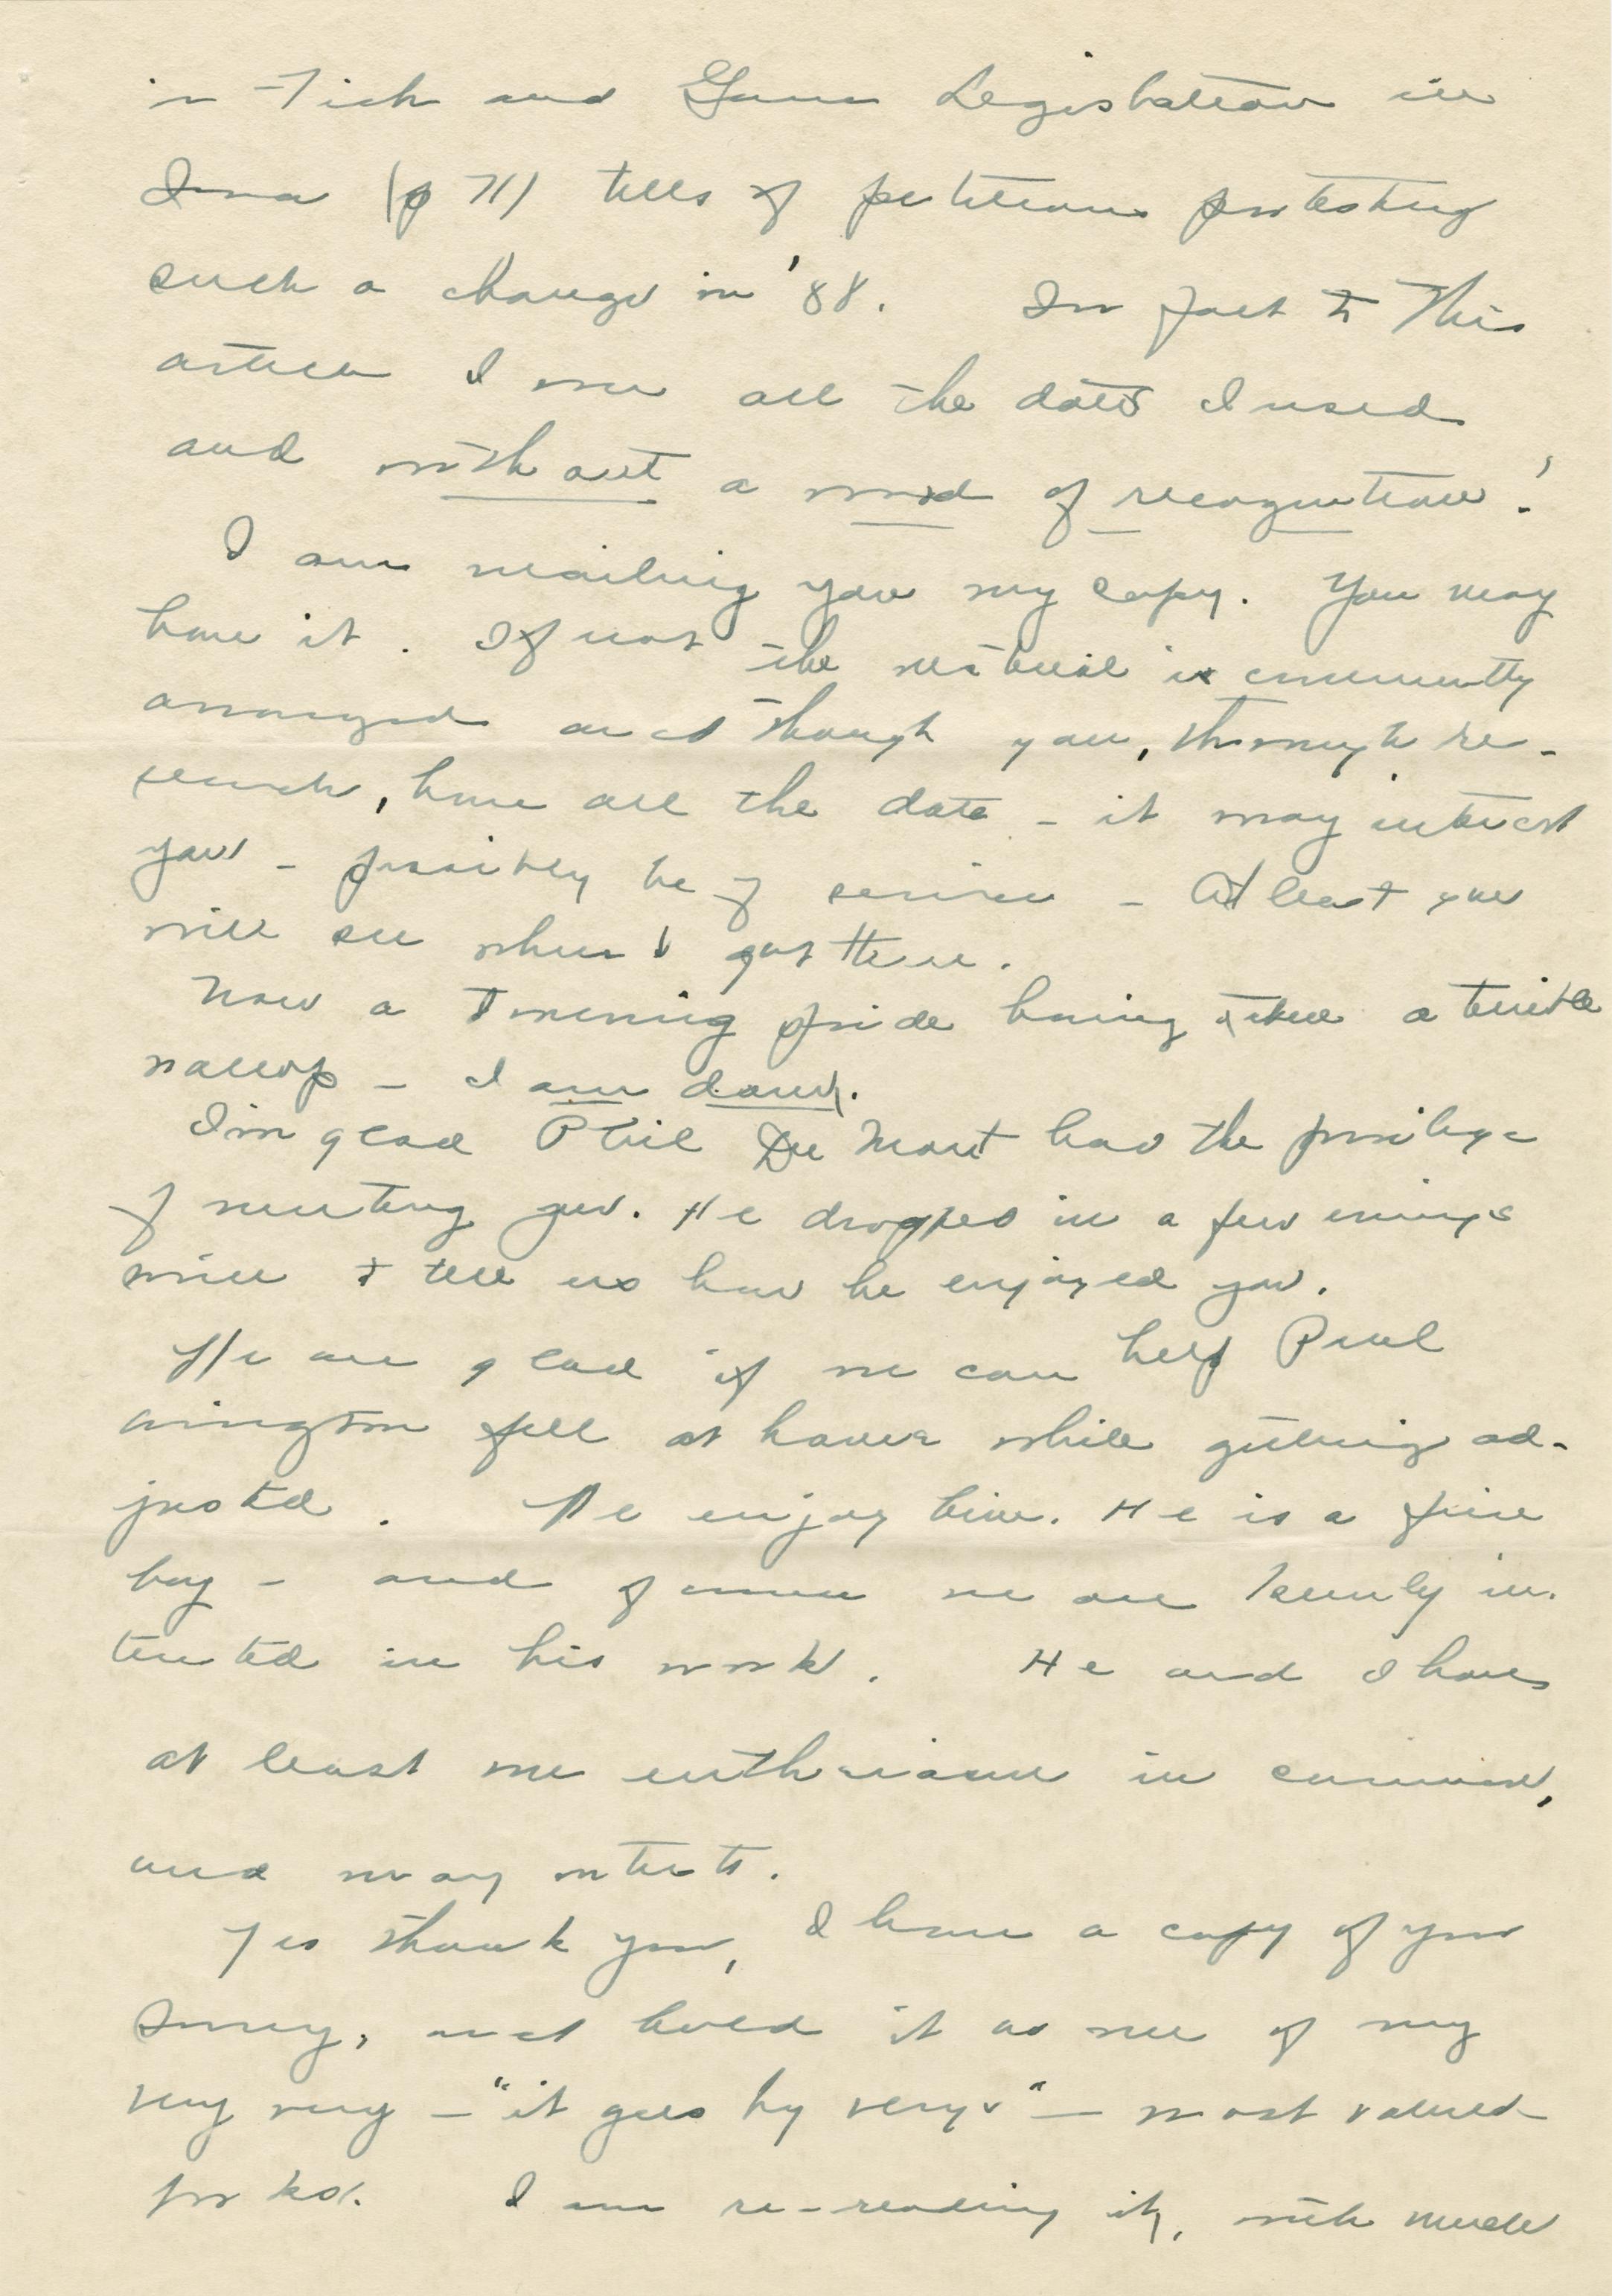 in Fish and Game Legislation in
Iowa (p 71) tells of petitions protesting
such a change in '88. In fact to this
article I owe all the data I used
and without a word of recognition!
I am mailing you my copy. You may
have it. If not the material is conveniently
arranged and though you, through re-
search, have all the data - it may interest
you - possibly be of service - At least you
will see where I got them.
Now a Towering pride having taken a terrible
wallop - I am down.
I'm glad Phil Du Mont had the privilege
of meeting you. He dropped in a few evenings
since to tell us how he enjoyed you.
We are glad if we can help Paul
Errington feel at home while getting ad-
justed. We enjoy him. He is a fine
boy - and of course we are keenly in-
terested in his work. He and I have
at least one enthusiasm in common,
and many interests.
Yes thank you, I have a copy of your
Survey, and hold it as one of my
very very - "it goes by verys" - most valued
books. I am re-reading it, with much